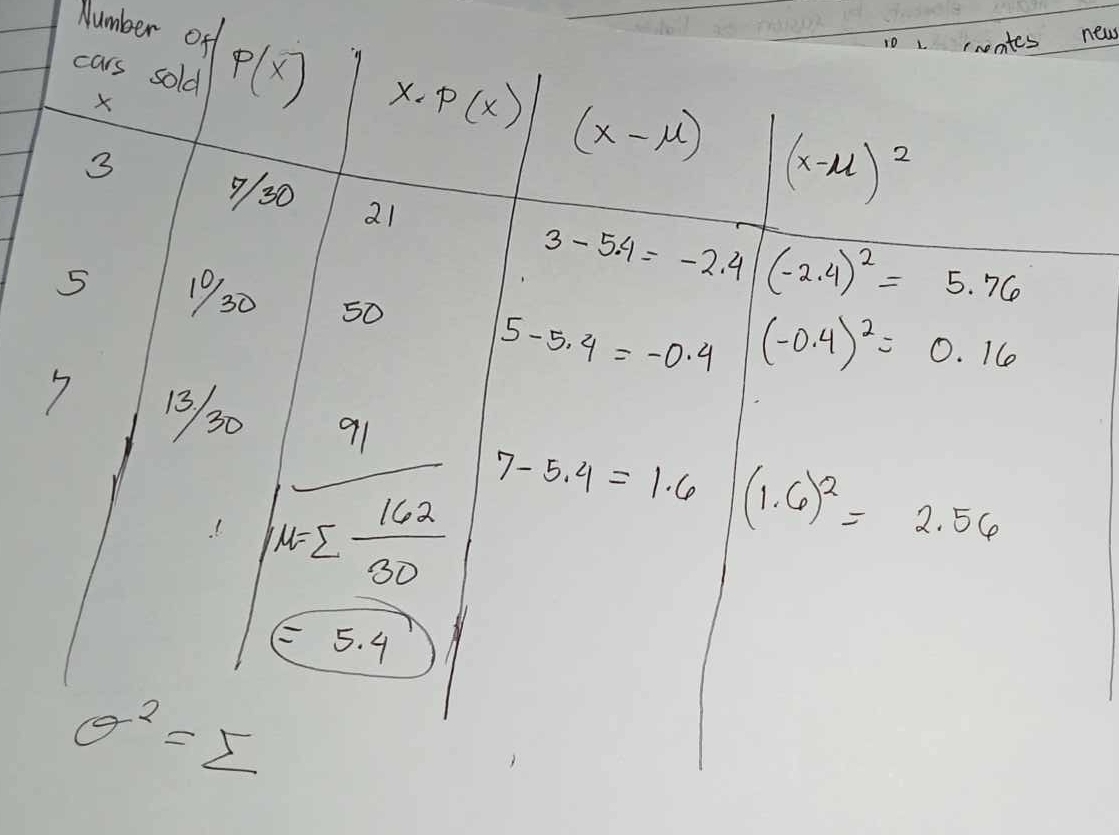 creates new
Number of cars sold x | P(x) | x . P(x) | (x - μ) | (x-μ)²
3 | 7/30 | 21 | 3 - 5.4 = -2.4 | (-2.4)² = 5.76
5 | 10/30 | 50 | 5 - 5.4 = -0.4 | (-0.4)² = 0.16
7 | 13/30 | 91 | 7 - 5.4 = 1.6 | (1.6)² = 2.56
μ = Σ 162/30
= 5.4
σ² = Σ